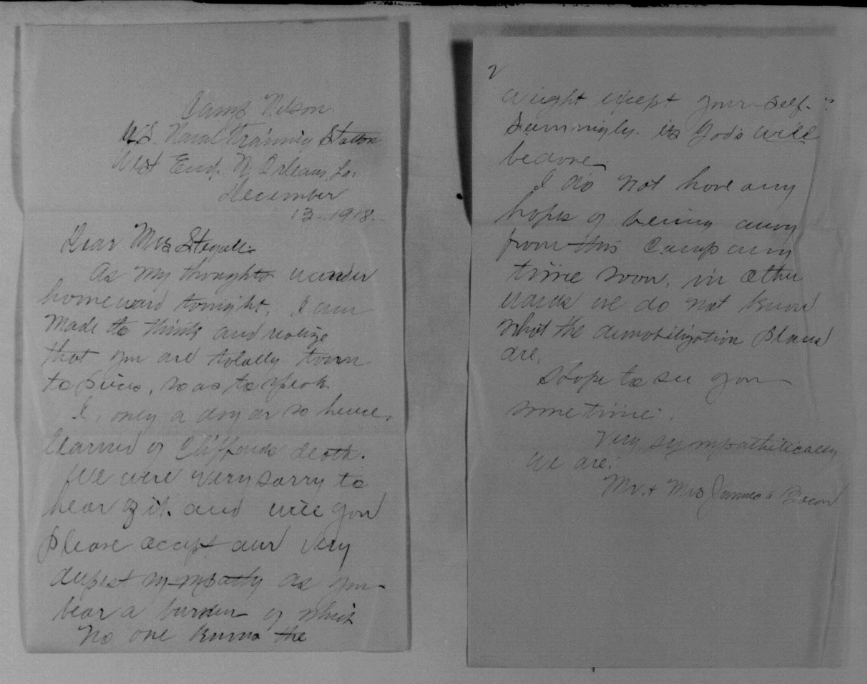 Camp Nelson
U.S. Naval Training Station
West End, N. Orleans, La.
December
13-1918.
Dear Mrs
As my thoughts wander
homeward tonight, I am
made to think and realize
that you are totally torn
to pieces, so as to speak.
I, only a day or so hence,
learned of Cliffords death.
We were very sorry to
hear of it and will you
please accept our very
deepest sympathy as you
bear a burden of which
no one knows the
2
weight except your-self.
Seemingly its God's will
be done
I do not have any
hopes of being away
from this Camp any
time soon, in other
words we do not know
what the demobilization plans
are.
I hope to see you
sometime.
Very sympathetically
we are.
Mr. + Mrs James